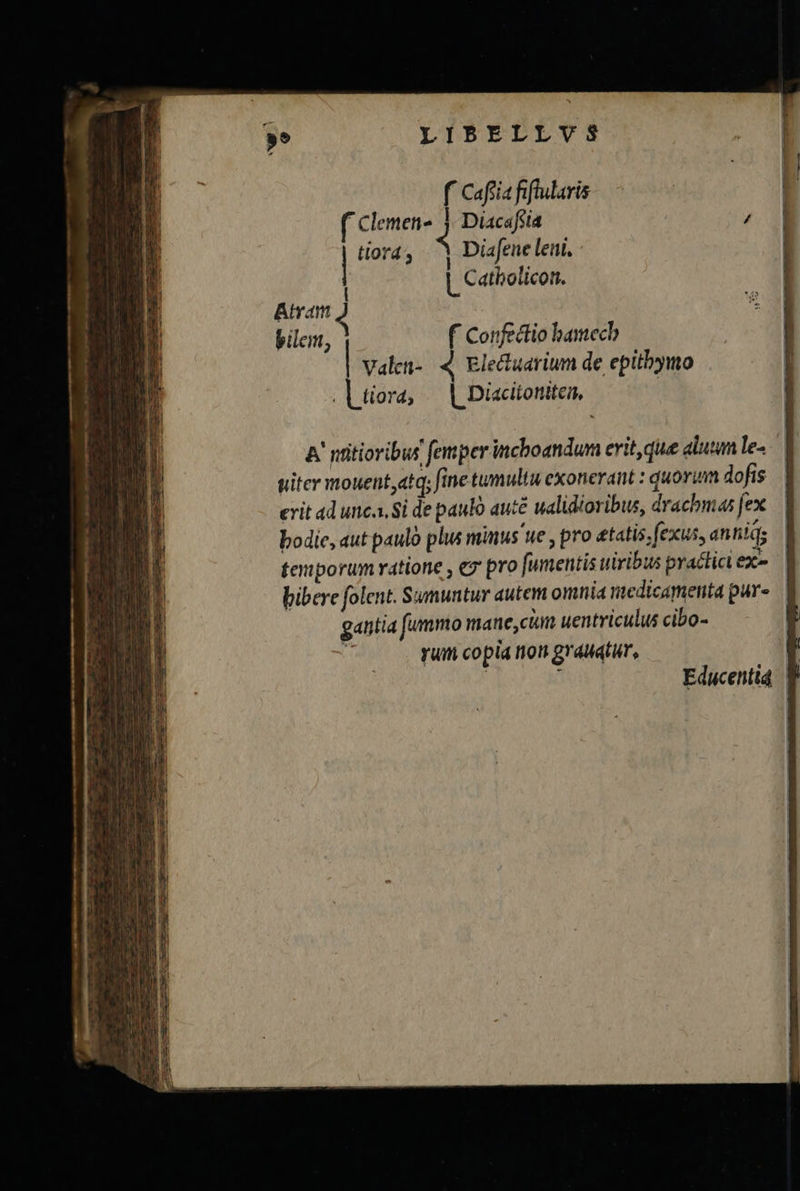 LIBELLVS
Caſsia fiſtularis
Clemen- Diacaſsia
tiora, Diaſene leni.
Catholicon.
Atram
bilem, Confectio hamech
Valen- Electuarium de epithymo
tiora, Diaciioniten.
A' mitioribus ſemper inchoandum erit, quæ aluum le-
uiter mouent, atq; ſine tumultu exonerant : quorum doſis
erit ad unc.1. Si de paulò autē ualidioribus, drachmas ſex
hodie, aut paulò plus minus ue, pro ætatis, ſexus, anniq;
temporum ratione, & pro ſumentis uiribus practici ex-
hibere ſolent. Sumuntur autem omnia medicamenta pur-
gantia ſummo mane, cùm uentriculus cibo-
rum copia non grauatur.
Educentia